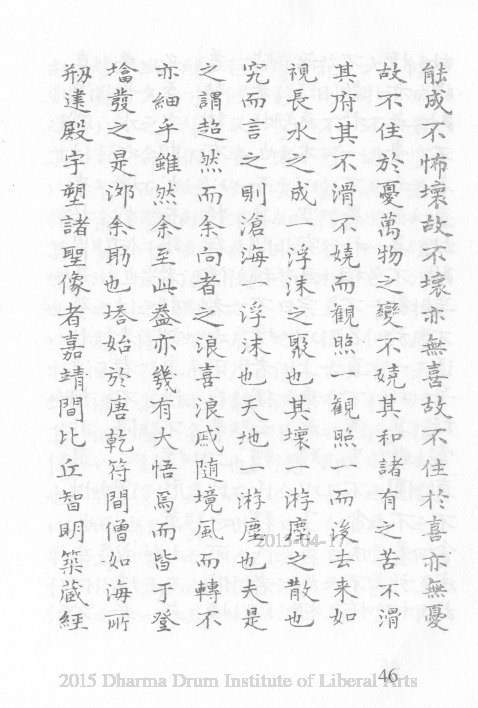 能成不怖壞故不壞亦無喜故不住於喜亦無憂
故不住於憂萬物之變不嬈其和諸有之苦不滑
其府其不滑不嬈而觀照一觀照一而後去来如
視長水之成一浮沫之聚也其壞一游塵之散也
究而言之則滄海一浮沫也天地一游塵也夫是
之謂超然而余向者之浪喜浪戚随境風而轉不
亦細乎雖然余至此益亦幾有大悟焉而皆于登
墖發之是邲余助也塔始於唐乾符間僧如海所
剏建殿宇塑諸聖像者嘉靖間比丘智明築蔵經
2015-04-17
46
2015 Dharma Drum Institute of Liberal Arts